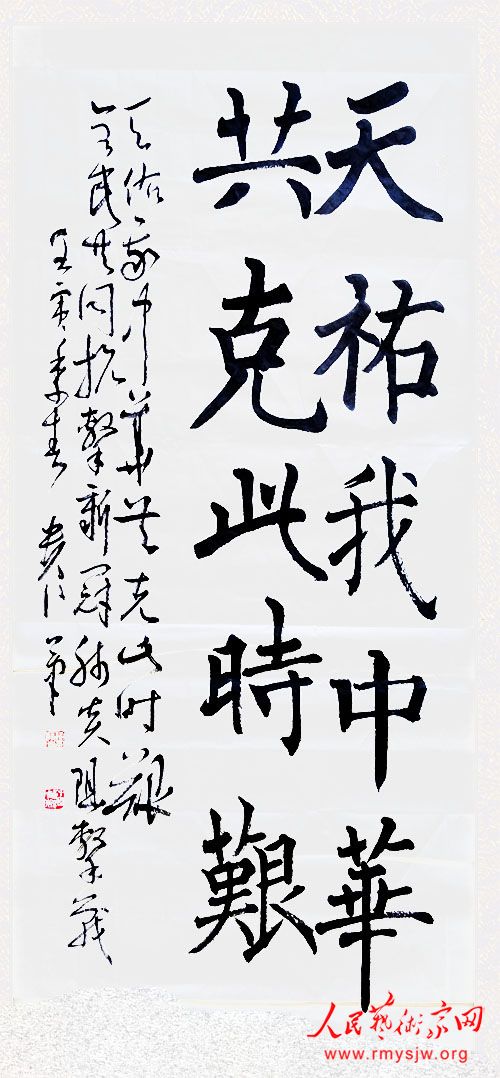 天祐我中華
共克此時艱
天佑我中华共克此时艰
全民共同抗击新冠肺炎阻击战
壬寅季春
人民藝術家网
www.rmysjw.org